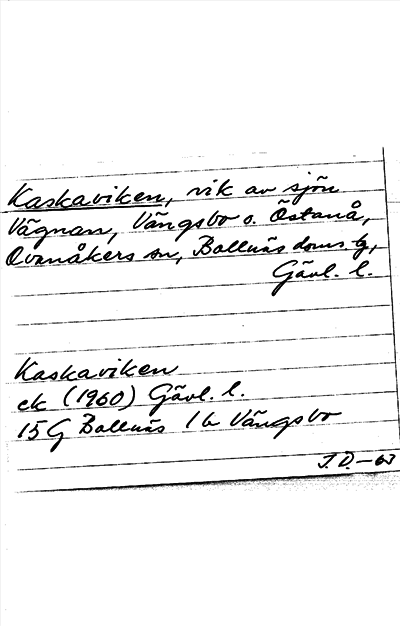 Kaskaviken, vik av sjön
Vägnan, Vängsbo o. Östanå,
Ovanåkers sn, Bollnäs doms.g,
Gävl. l.
Kaskaviken
ek (1960) Gävl. l.
15G Bollnäs 1b Vängsbo
J.D.-63